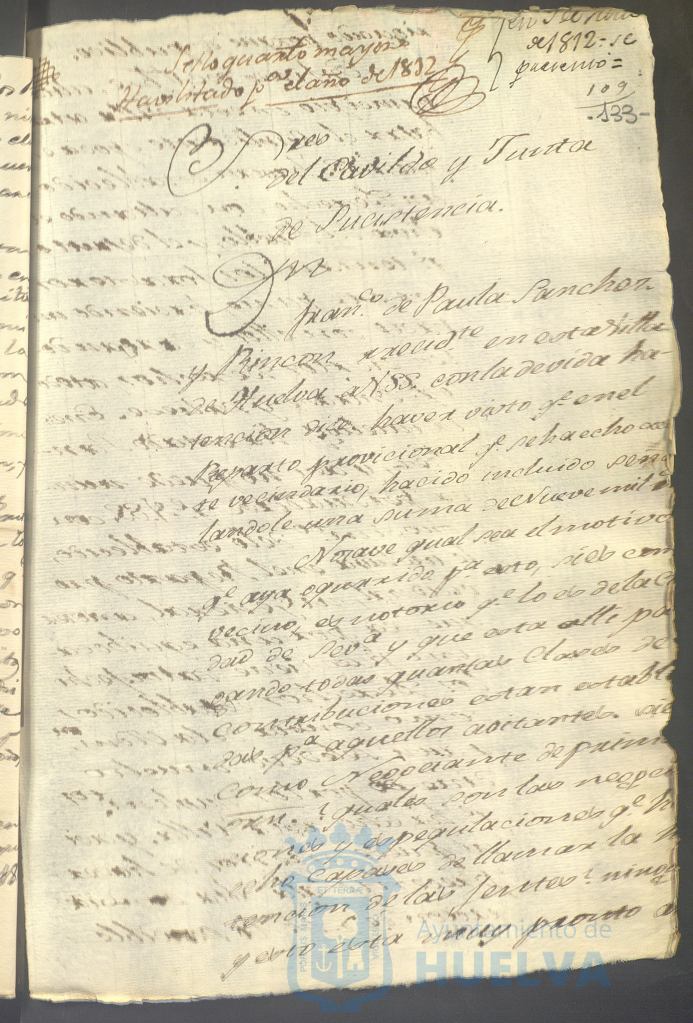 Sello quarto mayor
Havilitado pª. el año de 1812
de 1812 = se
109
133-
Sres
del Cavildo y Junta
de Sucistencia.
Franco. de Paula Sanchez
y Rincon recidte en esta Villa
de Huelva á VSS. con la devida ha-
tencion dice haver visto qe. en el
Reparto provicional qe. se ha echo a es
te vecindario, ha cido incluido seña
landole una suma de Nueve mil
No save qual sea el motivo
qe. aya ocurrido pa. esto, si es com
vecino, es notorio qe. lo es de la Ciu
dad de Seva. y que esta alli pa
gando todas quantas Clases de
contribuciones estan establ
das pa. aquellos avitantes
como Negociante de prim
orn. ¿quales son las negoc
ciones y espequlaciones qe. h
echo capases de llamar la
tencion de las Jentes? ningu
y esto esta muy pronto a
Ayuntamiento de
HUELVA